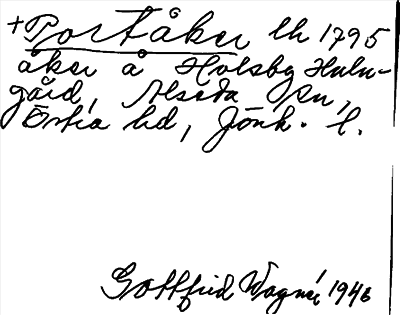 + Portåker lh 1795
åker å Holsby Hulu-
gård, Alseda sn,
Östra hd, Jönk. l.
Gottfrid Wagnér 1946